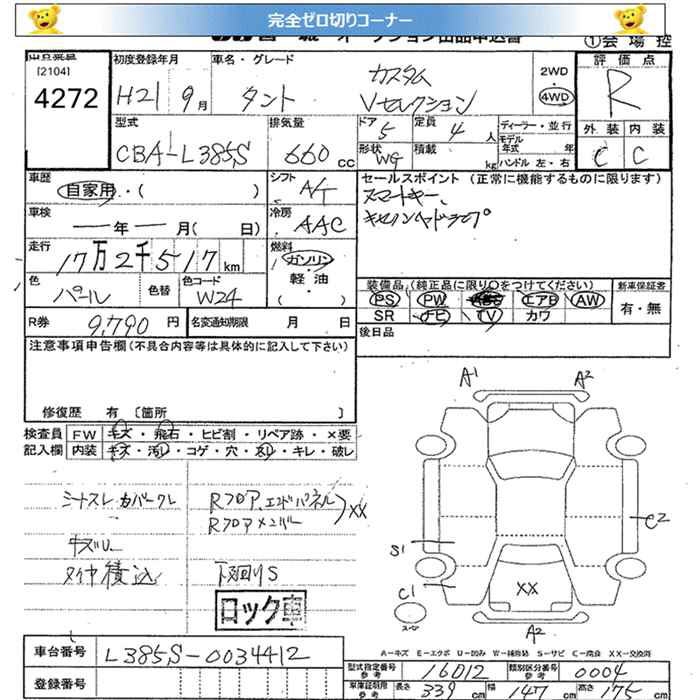 完全ゼロ切りコーナー
①会場控
出品番号
[2104]
4272
初度登録年月
H21 9月
車名・グレード
カスタム
タント Vセレクション
2WD
・
4WD
評価点
R
外装 内装
C C
型式
CBA-L385S
排気量
660 cc
ドア
5
定員
4人
形状
WG
積載
kg
ディーラー・並行
モデル年式 年
ハンドル 左・右
車歴
自家用・( )
シフト
A/T
車検
年 月( 日)
冷房
AAC
走行
17万2千517km
燃料
ガソリン
軽・油
( )
色
パール
色替
色コード
W24
セールスポイント (正常に機能するものに限ります)
スマートキー、
装備品(純正品に限り○をつけてください)
PS PW ABS エアB AW
SR ナビ TV カワ
新車保証書
有・無
R券
9,790円
名変通知期限 月 日
後日品
注意事項申告欄(不具合内容等は具体的に記入して下さい)
修復歴 有 〔箇所 〕
検査員 FW キズ・飛石・ヒビ割・リペア跡・×要
記入欄 内装 キズ・汚レ・コゲ・穴・スレ・キレ・破レ
シートスレ カバークレ
キズU
タイヤ積込
Rフロア、エンドパネル
Rフロアメンバー
XX
下回りS
ロック車
A1 A2
C2
S1
C1
スペア
XX
A2
A-キズ E-エクボ U-凹み W-補修跡 S-サビ C-腐食 XX-交換済
車台番号 L385S-0034412
登録番号
型式指定番号参考 16012
類別区分番号参考 0004
車庫証明用参考 長さ 339cm 幅 147cm 高さ 175cm